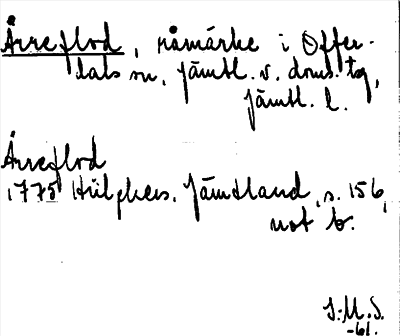 Årreflod, råmärke i Offer-
dals sn, Jämtl. v. doms. tg,
Jämtl. l.
Årreflod
1775 Hülphers. Jämtland, s. 156,
not b.
J.M.S.
-61.